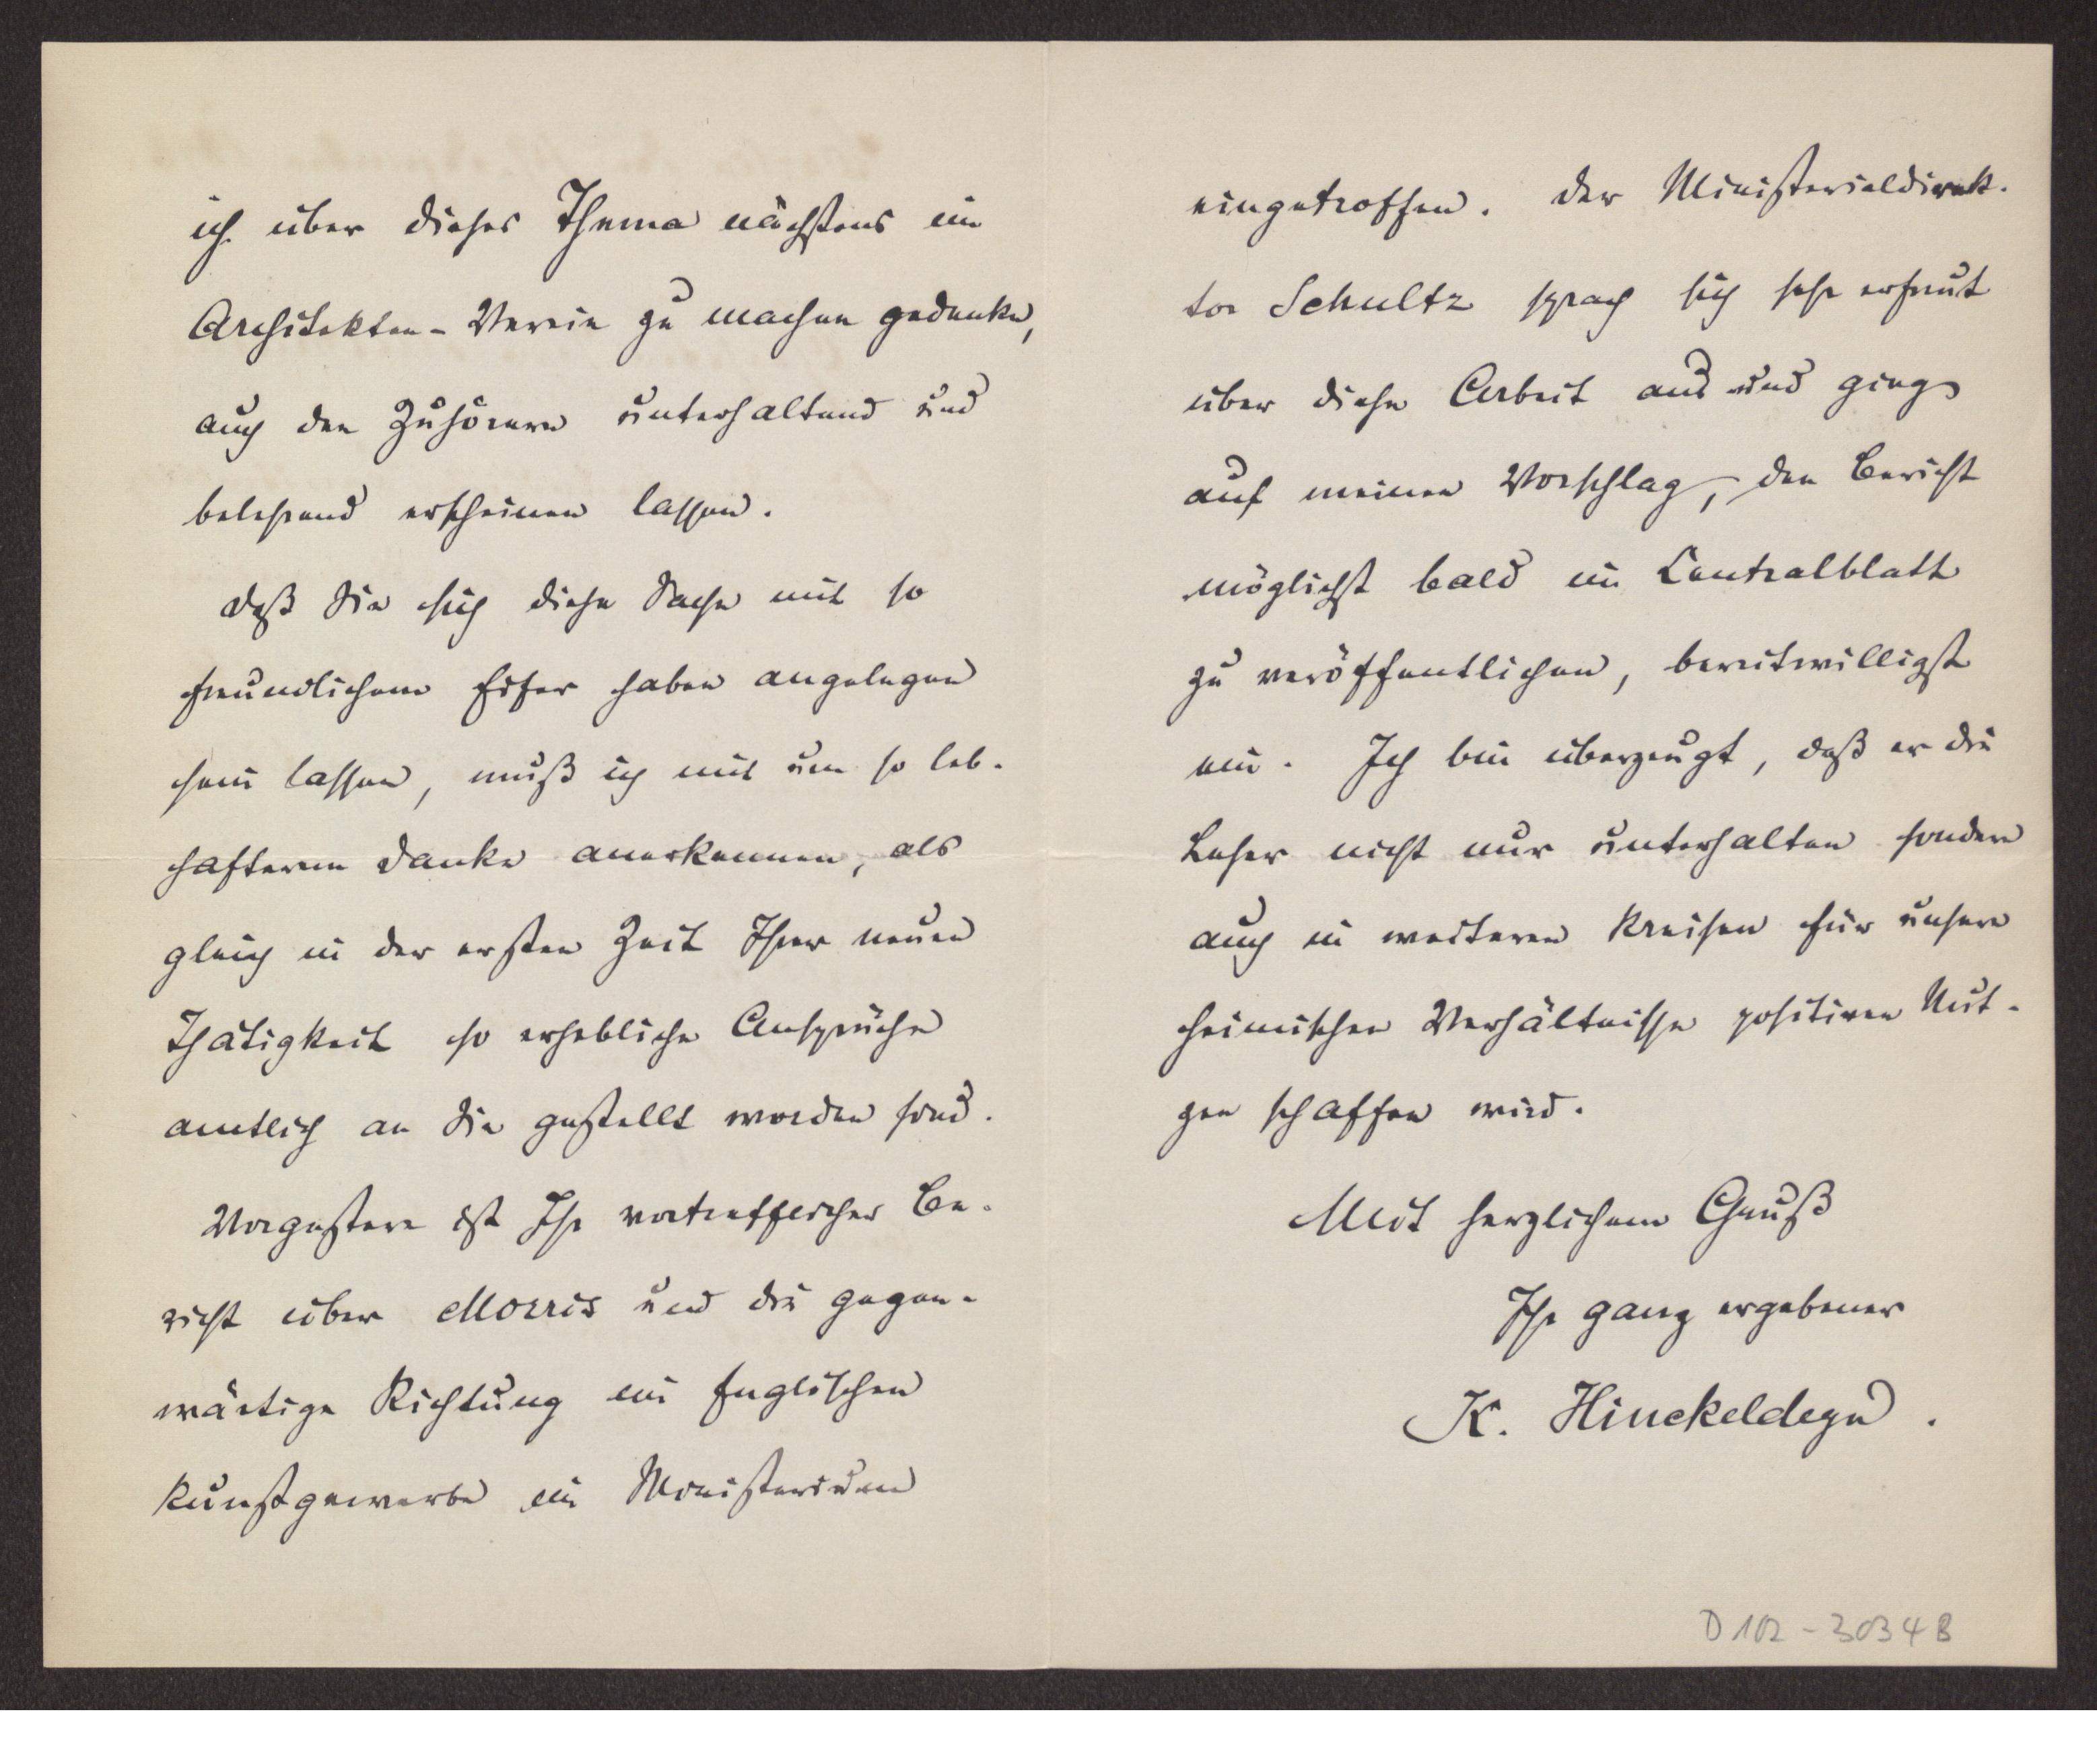 ich über dieses Thema nächstens im
Architekten-Verein zu machen gedenke,
auch den Zuhörern unterhaltend und
belehrend erscheinen lassen.
Daß Sie sich diese Sache mit so
freundlichem Eifer haben angelegen
sein lassen, muß ich mit um so leb-
hafterem Danke anerkennen, als
gleich in der ersten Zeit Ihrer neuen
Thätigkeit so erhebliche Ansprüche
amtlich an Sie gestellt worden sind.
Vorgestern ist Ihr vortrefflicher Be-
richt über Morris und die gegen-
wärtige Richtung im Englischen
Kunstgewerbe im Ministerium
eingetroffen. Der Ministerialdirek-
tor Schultz sprach sich sehr erfreut
über diese Arbeit aus und ging
auf meinen Vorschlag, den Bericht
möglichst bald im Centralblatt
zu veröffentlichen, bereitwilligst
ein. Ich bin überzeugt, daß er die
Leser nicht nur unterhalten sondern
auch in weiteren Kreisen für unsere
heimischen Verhältnisse positiven Nut-
zen schaffen wird.
Mit herzlichem Gruß
Ihr ganz ergebener
K. Hinckeldeyn.
D 102-3034 B